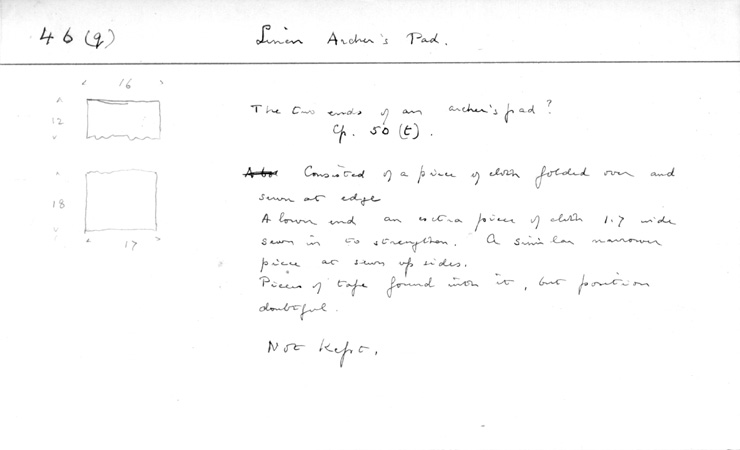 46 (q)
Linen Archer's Pad.
16
12
18
17
The two ends of an archer's pad?
Cp. 50 (t).
Consisted of a piece of cloth folded over and
sewn at edge
A lower end an extra piece of cloth 1.7 wide
sewn in to strengthen. A similar narrower
piece at sewn up sides.
Pieces of tape found with it, but position
doubtful.
Not Kept.